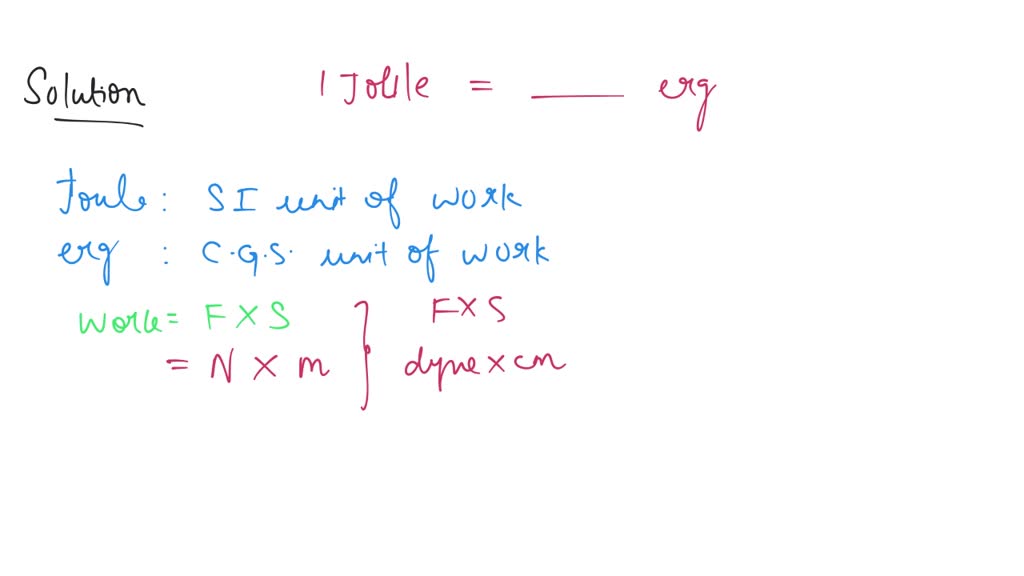 Solution 1 Joule = ____ erg
Joule : SI unit of work
erg : C.G.S. unit of work
Work = F × S } F × S
= N × m dyne × cm